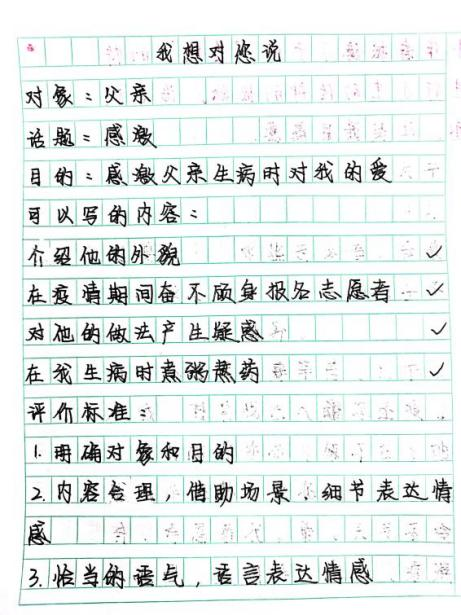 我想对您说
对象：父亲
话题：感激
目的：感激父亲生病时对我的爱
可以写的内容：
介绍他的外貌 ✓
在疫情期间奋不顾身报名志愿者 ✓
对他的做法产生疑惑 ✓
在我生病时煮粥熬药 ✓
评价标准：
1.明确对象和目的
2.内容合理，借助场景、细节表达情
感
3.恰当的语气，语言表达情感